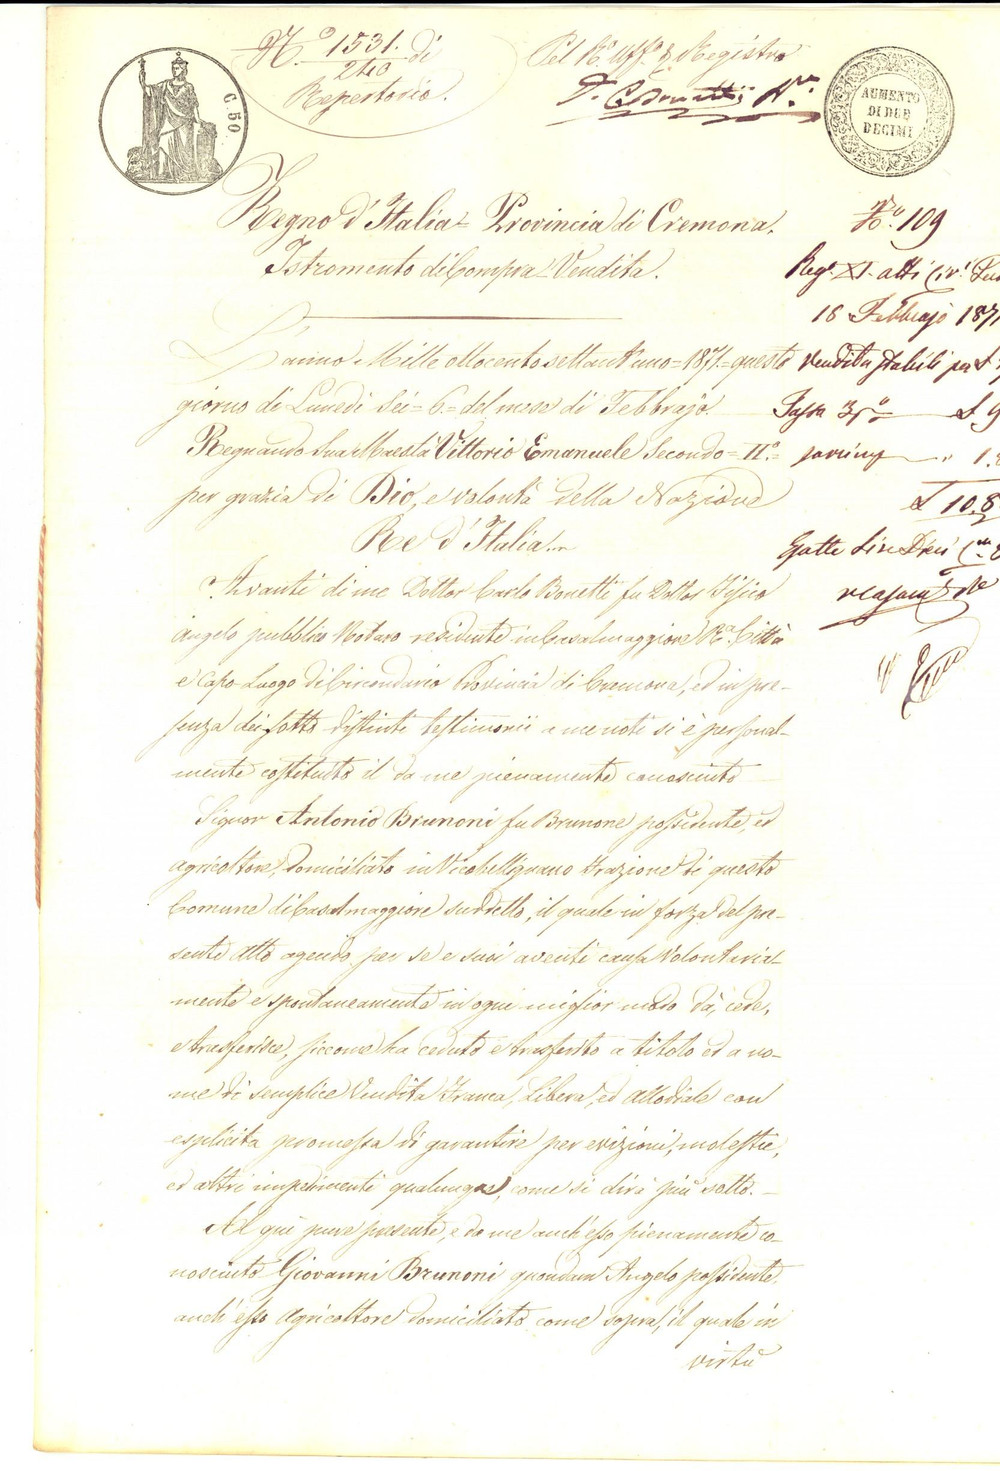 N.° 1531. di
2410
Repertorio.
Pel R.° Uff.° di Registro
C. 50
AUMENTO
DI DUE
DECIMI
Regno d'Italia = Provincia di Cremona.
Istromento di Compra Vendita.
N.° 109
Reg.° XI. atti Civ.i
16 Febbrajo 1871
Vendita stabili per £
Tassa £. 9
1.8
£ 10.8
Esatte Lire Dieci
L'anno Mille ottocento settant'uno = 1871 = questo
giorno di Lunedì sei = 6 = del mese di Febbrajo
Regnando Sua Maestà Vittorio Emanuele Secondo = II.° =
per grazia di Dio, e volontà della Nazione
Re d'Italia.
Avanti di me Dottor Carlo Bonetti fu Dottor Fisico
Angelo pubblico Notaro residente in Casalmaggiore R.a Città
e Capo-Luogo di Circondario Provincia di Cremona, ed in pre-
senza dei sotto distinti testimonii a me noti si è personal-
mente costituito il da me pienamente conosciuto
Signor Antonio Brunoni fu Brunone possidente, ed
agricoltore, domiciliato in Vicobellignano frazione di questo
Comune di Casalmaggiore suddetto, il quale in forza del pre-
sente atto agendo per se e suoi aventi causa volontaria-
mente e spontaneamente in ogni miglior modo dà, cede,
e trasferisce, siccome ha ceduto e trasferito a titolo ed a no-
me di semplice Vendita Franca, Libera, ed allodiale con
esplicita promessa di garantire per evizioni, molestie,
ed altri impedimenti qualunque, come si dirà più sotto. —
Al qui pure presente, e da me anch'esso pienamente co-
nosciuto Giovanni Brunoni quondam Angelo possidente,
anch'esso agricoltore domiciliato come sopra, il quale in
virtù